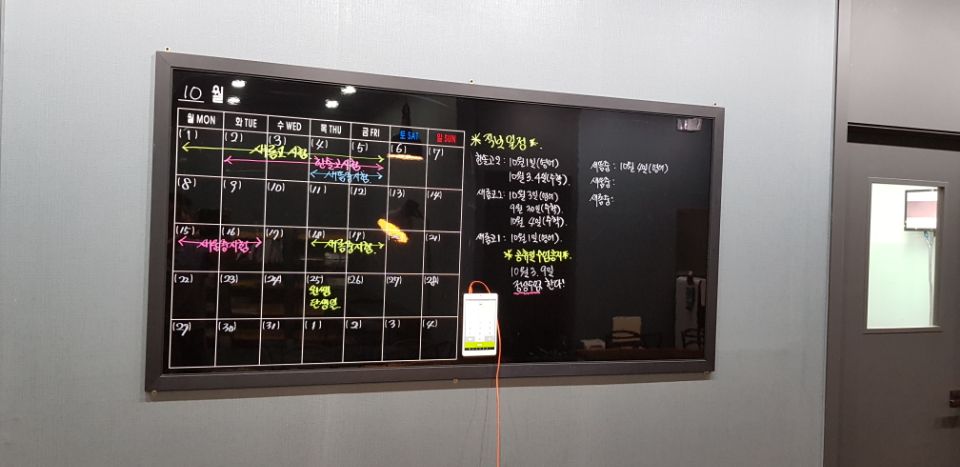 10 월
월 MON 화 TUE 수 WED 목 THU 금 FRI 토 SAT 일 SUN
(1) (2) (3) (4) (5) (6) (7)
새롬고 시험
한솔고시험
새뜸중시험
(8) (9) (10) (11) (12) (13) (14)
(15) (16) (17) (18) (19) (21)
새롬중시험 새움중시험
(22) (23) (24) (25) (26) (27) (28)
탄생일
(29) (30) (31) (1) (2) (3) (4)
일정
한솔고2: 10월1일(영어)
10월3.4일(수학).
새롬고2: 10월3일(영어)
9월 30일(수학).
10월 4일(수학).
새롬고1: 10월1일(영어).
공휴일 수업공지
10월 3. 9일
정상수업 한다!
새뜸중: 10월 4일(영어)
새움중:
새롬중: